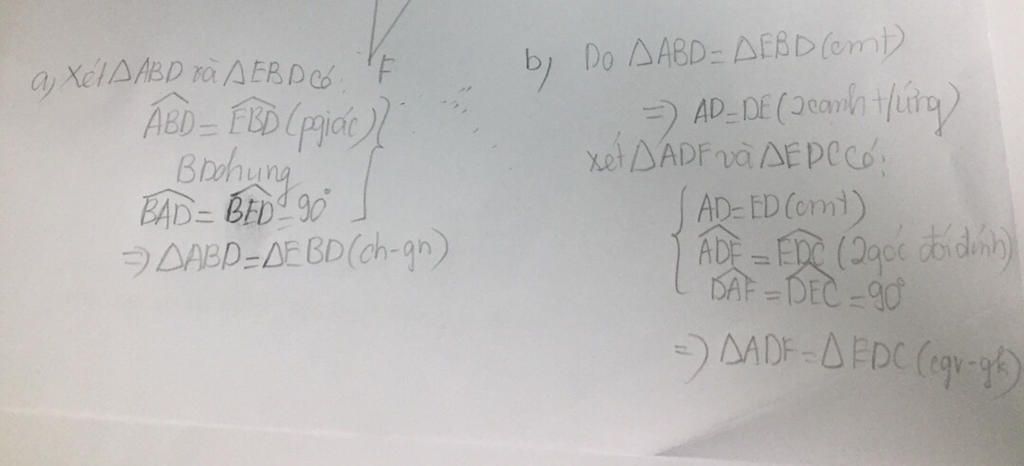 F
a, Xét △ABD và △EBD có:
ABD = EBD (pgiác)
BD chung
BAD = BED = 90°
=> △ABD = △EBD (ch-gn)
b, Do △ABD = △EBD (cmt)
=> AD = DE (2 cạnh t/ứng)
xét △ADF và △EDC có:
AD = ED (cmt)
ADF = EDC (2 góc đối đỉnh)
DAF = DEC = 90°
=> △ADF = △EDC (cgv-gk)